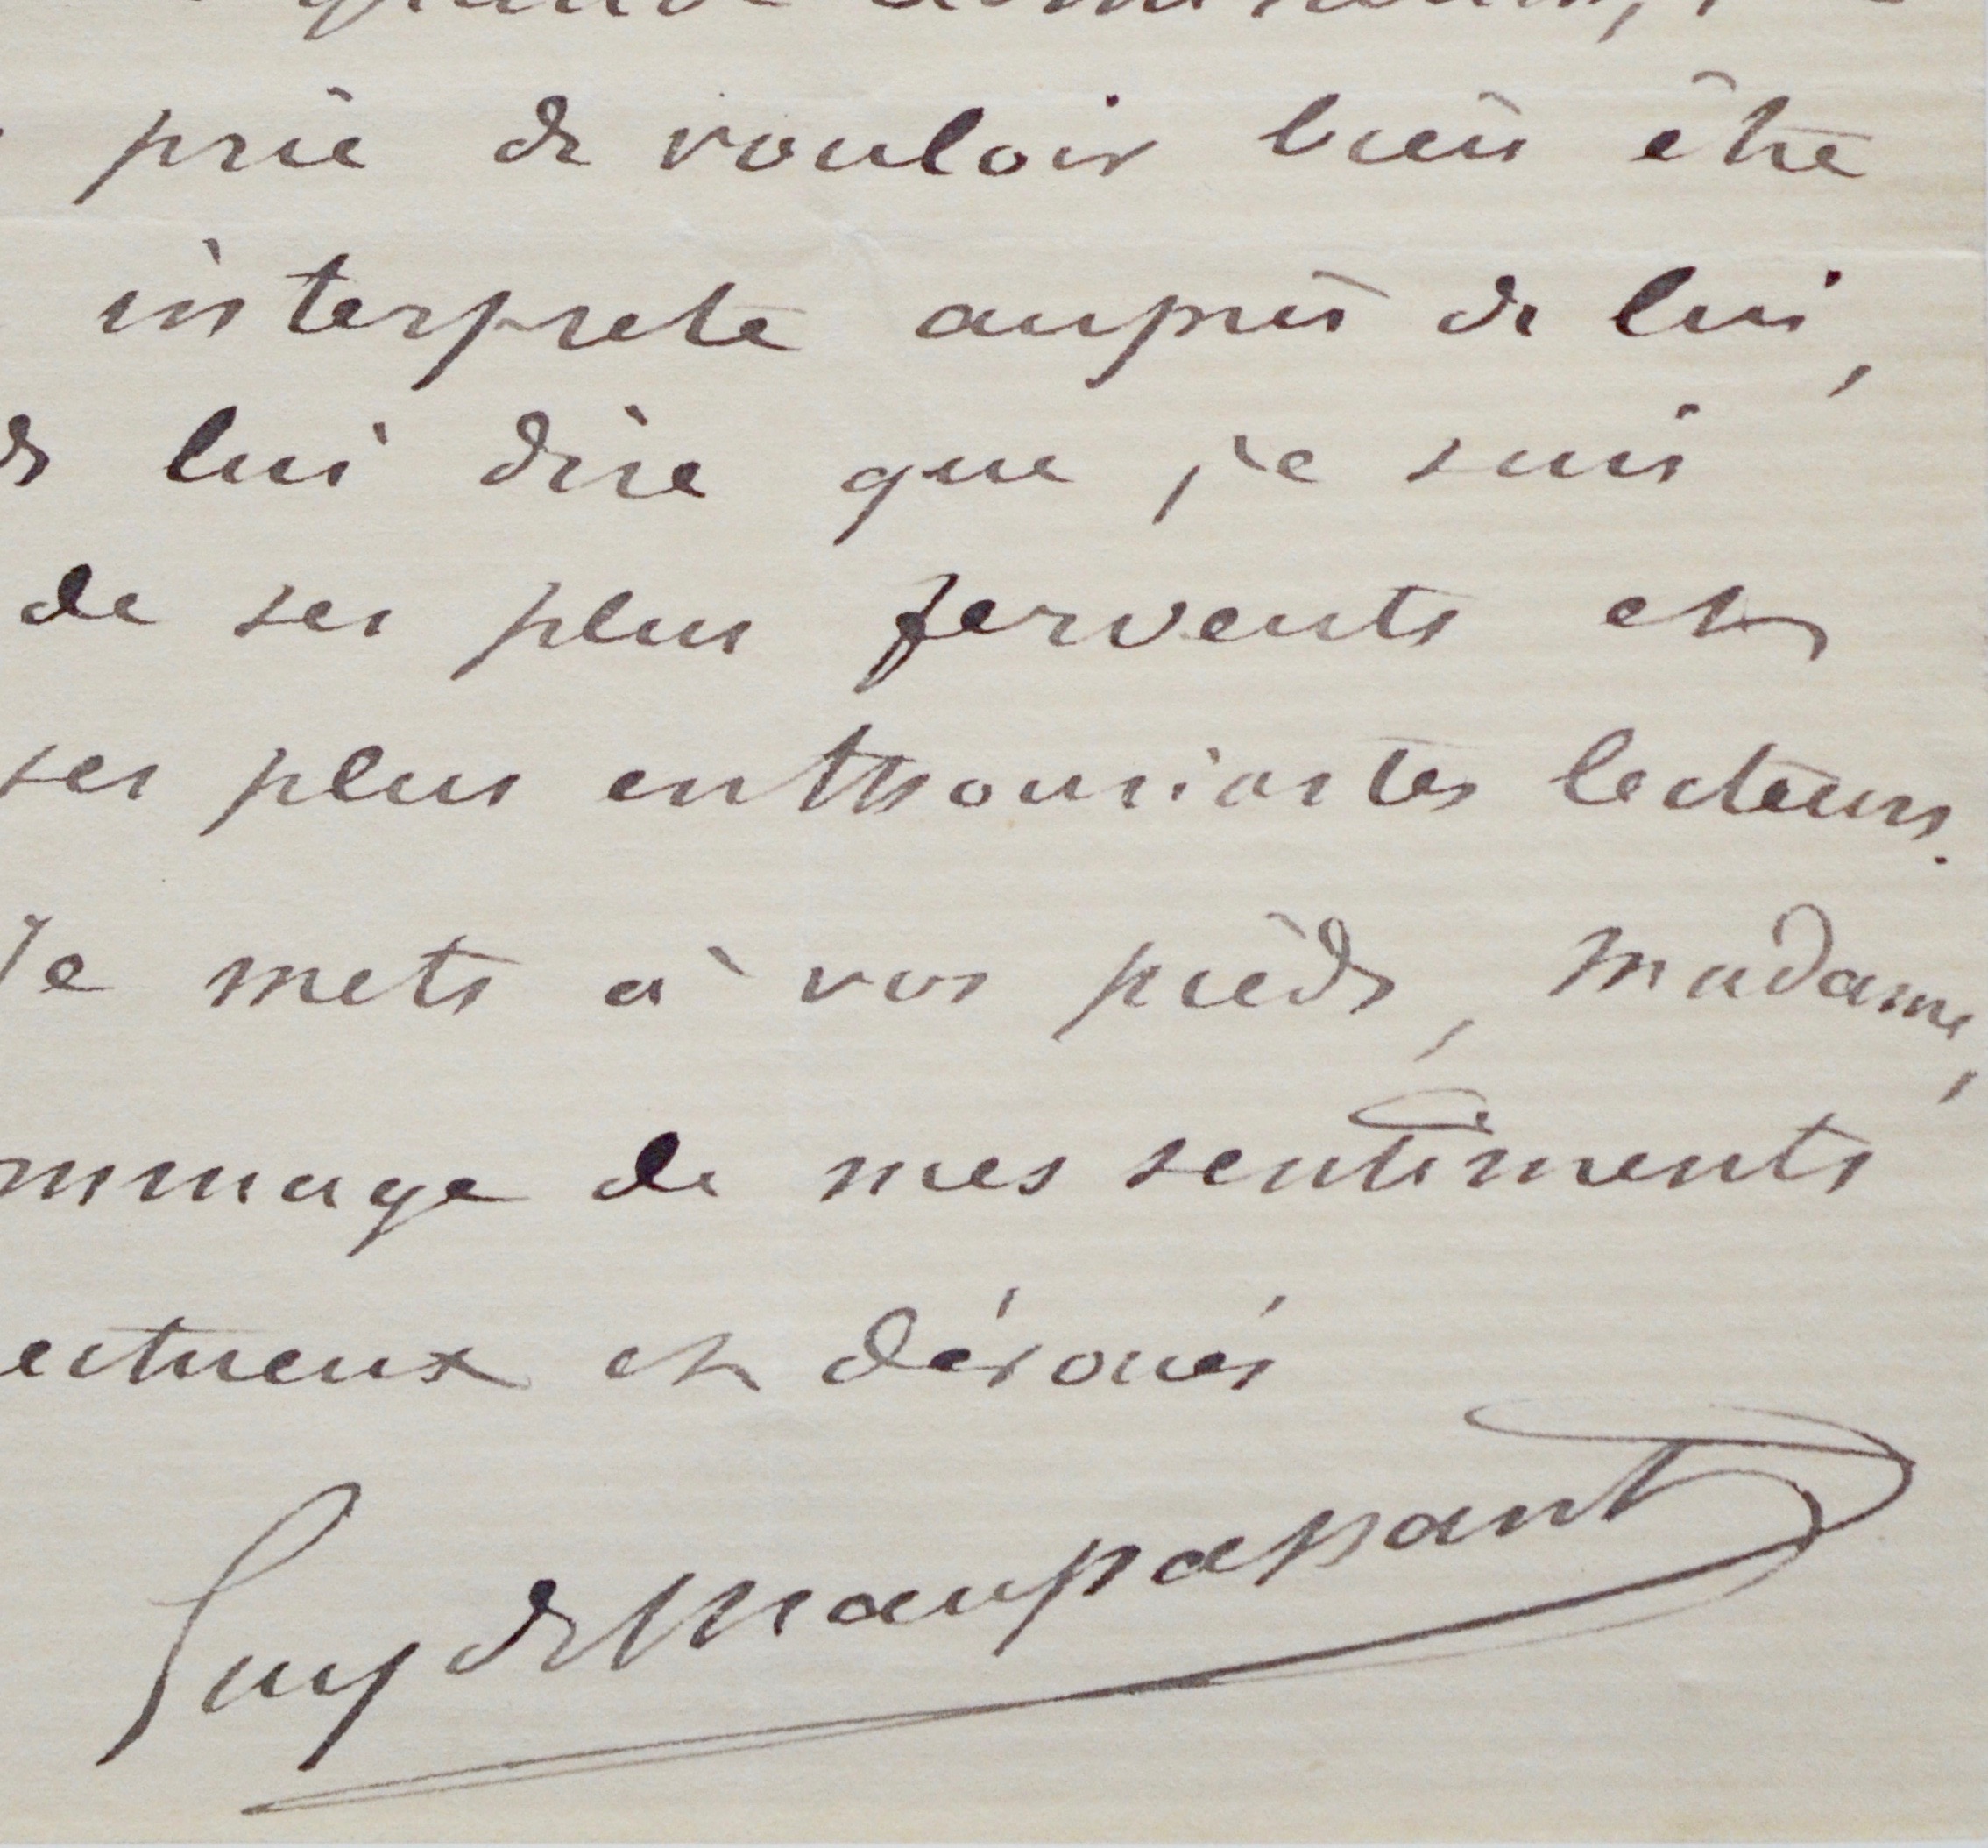 prie de vouloir bien être
interprete auprès de lui,
de lui dire que je suis
de ses plus fervents et
ses plus enthousiastes lecteurs.
Je mets à vos pieds, Madame,
ommage de mes sentiments
ectueux et dévoués
Guy de Maupassant